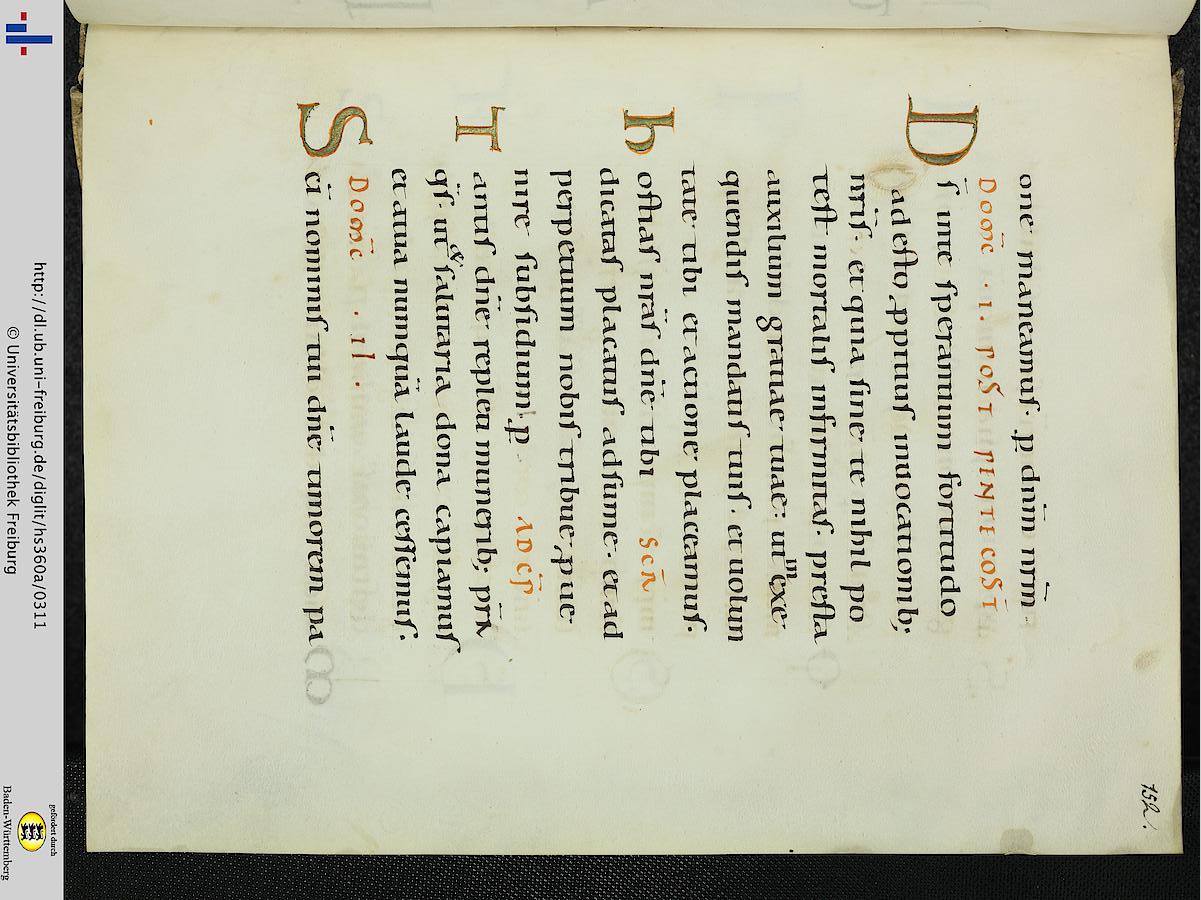 one maneamuſ· p dnm̄ nr̄m·
DOMC̄ · I · POST PENTECOST
Dſ̄ inte ſperantium fortitudo
adeſto ppitiuſ inuocationib;
nr̄iſ· et quia ſine te nihil po
teſt mortaliſ infirmitaſ· preſta
auxilium gratiae tuae· ut in exe
quendiſ mandatiſ tuiſ· et uolun
tate tibi et actione placeamuſ·
hoſtiaſ nr̄aſ dnē tibi SCR̄
dicataſ placatuſ adſume· et ad
perpetuum nobiſ tribue, pue
nire ſubſidium· p AD CP̄
Tantiſ dnē repleti munerib; pr̄
qſ̄· ut & ſalutaria dona capiamuſ
et a tua numquā laude ceſſemuſ·
DOMC̄ · II ·
Scī nominiſ tui dnē timorem pa
152.
http://dl.ub.uni-freiburg.de/diglit/hs360a/0311
© Universitätsbibliothek Freiburg
gefördert durch
Baden-Württemberg